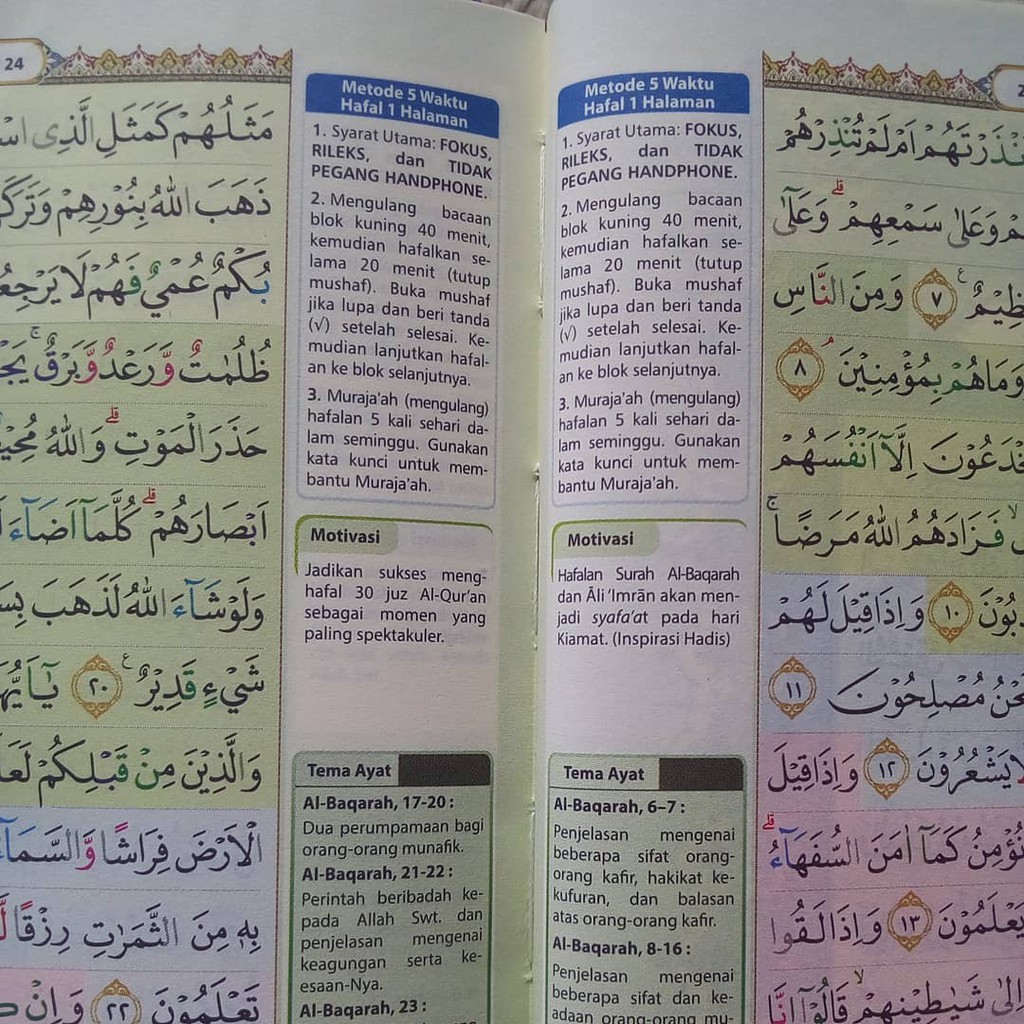 24
مَثَلُهُمْ كَمَثَلِ الَّذِى
ذَهَبَ اللّٰهُ بِنُوْرِهِمْ
بُكْمٌ عُمْيٌ فَهُمْ لَا
ظُلُمٰتٌ وَّرَعْدٌ وَّبَرْقٌۚ
حَذَرَ الْمَوْتِۗ وَاللّٰهُ
اَبْصَارَهُمْۗ كُلَّمَآ اَضَاۤءَ
وَلَوْ شَاۤءَ اللّٰهُ لَذَهَبَ
شَيْءٍ قَدِيْرٌ ࣖ ٢٠
وَالَّذِيْنَ مِنْ قَبْلِكُمْ
الْاَرْضَ فِرَاشًا
بِهٖ مِنَ الثَّمَرٰتِ رِزْقًا
تَعْلَمُوْنَ ٢٢ وَاِنْ
Metode 5 Waktu
Hafal 1 Halaman
1. Syarat Utama: FOKUS,
RILEKS, dan TIDAK
PEGANG HANDPHONE.
2. Mengulang bacaan
blok kuning 40 menit,
kemudian hafalkan se-
lama 20 menit (tutup
mushaf). Buka mushaf
jika lupa dan beri tanda
(√) setelah selesai. Ke-
mudian lanjutkan hafal-
an ke blok selanjutnya.
3. Muraja'ah (mengulang)
hafalan 5 kali sehari da-
lam seminggu. Gunakan
kata kunci untuk mem-
bantu Muraja'ah.
Motivasi
Jadikan sukses meng-
hafal 30 juz Al-Qur'an
sebagai momen yang
paling spektakuler.
Tema Ayat
Al-Baqarah, 17-20 :
Dua perumpamaan bagi
orang-orang munafik.
Al-Baqarah, 21-22 :
Perintah beribadah ke-
pada Allah Swt. dan
penjelasan mengenai
keagungan serta ke-
esaan-Nya.
Al-Baqarah, 23 :
Metode 5 Waktu
Hafal 1 Halaman
1. Syarat Utama: FOKUS,
RILEKS, dan TIDAK
PEGANG HANDPHONE.
2. Mengulang bacaan
blok kuning 40 menit,
kemudian hafalkan se-
lama 20 menit (tutup
mushaf). Buka mushaf
jika lupa dan beri tanda
(√) setelah selesai. Ke-
mudian lanjutkan hafal-
an ke blok selanjutnya.
3. Muraja'ah (mengulang)
hafalan 5 kali sehari da-
lam seminggu. Gunakan
kata kunci untuk mem-
bantu Muraja'ah.
Motivasi
Hafalan Surah Al-Baqarah
dan Āli 'Imrān akan men-
jadi syafa'at pada hari
Kiamat. (Inspirasi Hadis)
Tema Ayat
Al-Baqarah, 6–7 :
Penjelasan mengenai
beberapa sifat orang-
orang kafir, hakikat ke-
kufuran, dan balasan
atas orang-orang kafir.
Al-Baqarah, 8-16 :
Penjelasan mengenai
beberapa sifat dan ke-
adaan orang-orang mu-
اَمْ لَمْ تُنْذِرْهُمْ
وَعَلٰى سَمْعِهِمْۗ وَعَلٰٓى
٧ وَمِنَ النَّاسِ
وَمَا هُمْ بِمُؤْمِنِيْنَۘ ٨
اِلَّآ اَنْفُسَهُمْ
فَزَادَهُمُ اللّٰهُ مَرَضًاۚ
١٠ وَاِذَا قِيْلَ لَهُمْ
مُصْلِحُوْنَ ١١
لَا يَشْعُرُوْنَ ١٢ وَاِذَا قِيْلَ
كَمَآ اٰمَنَ السُّفَهَاۤءُۗ
١٣ وَاِذَا لَقُوا
اِلٰى شَيٰطِيْنِهِمْۙ قَالُوْٓا اِنَّا